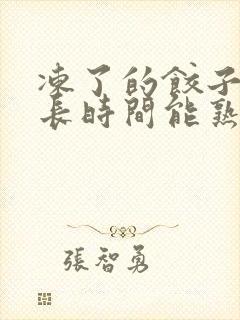 凍了的餃子
長時間能熟
張智勇